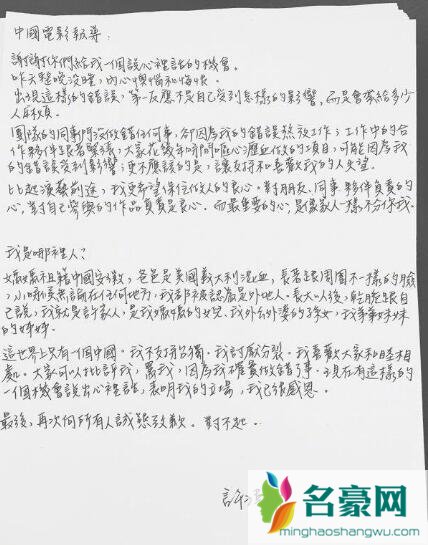 中國電影報導：
謝謝你們給我一個說心裡話的機會。
昨天整晚沒睡，內心懊惱和悔恨。
出現這樣的錯誤，第一反應不是自己受到怎樣的影響，而是會帶給多少
人麻煩。
團隊的同事們沒做錯任何事，卻因為我的錯誤熬夜工作；工作中的合
作夥伴跟著緊張，大家花幾年時間嘔心瀝血做的項目，可能因為我
的錯誤受到影響；更不應該的是，讓支持和喜歡我的人失望。
比起演藝前途，我更希望保住做人的良心。對朋友、同事夥伴負責的
心，對自己參與的作品負責是良心。而最重要的心，是像家人一樣不分你我。
我是哪裡人？
媽媽祖籍中國安徽，爸爸是美國義大利混血，長著跟周圍不一樣的臉
，小時候無論在任何地方，我都被認為是外地人。長大以後，乾脆跟自
己說，我就是許家人，是我媽媽的女兒，我外公外婆的孫女，我弟弟妹妹
的姊姊。
這世界上只有一個中國。我不支持台獨。我討厭分裂。我喜歡大家和睦相
處。大家可以批評我，罵我，因為我確實做錯了事。現在有這樣的
一個機會說出心裡話，表明我的立場，我已很感恩。
最後，再次向所有人誠懇致歉。對不起。
許
名豪网
minghaoshangwu.com